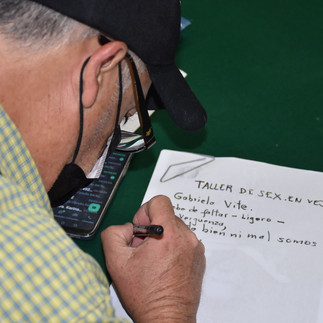 TALLER DE SEX. EN VE
Gabriela Vite.
de faltar - ligero -
bien ni mal) somos